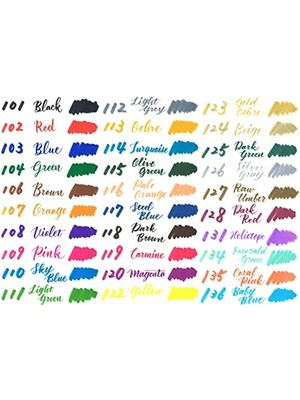 101 Black
102 Red
103 Blue
104 Green
106 Brown
107 Orange
108 Violet
109 Pink
110 Sky Blue
111 Light Green
112 Light Grey
113 Ochre
114 Turquoise
115 Olive Green
116 Pale Orange
117 Steel Blue
118 Dark Brown
119 Carmine
120 Magenta
122 Yellow
123 Gold Ochre
124 Beige
125 Dark Green
126 Silver Grey
127 Raw Umber
128 Dark Red
131 Heliotope
134 Emerald Green
135 Coral Pink
136 Baby Blue